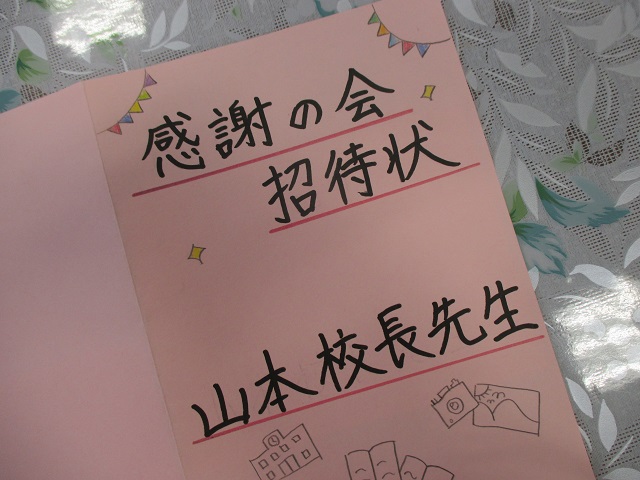 感謝の会
招待状
山本校長先生